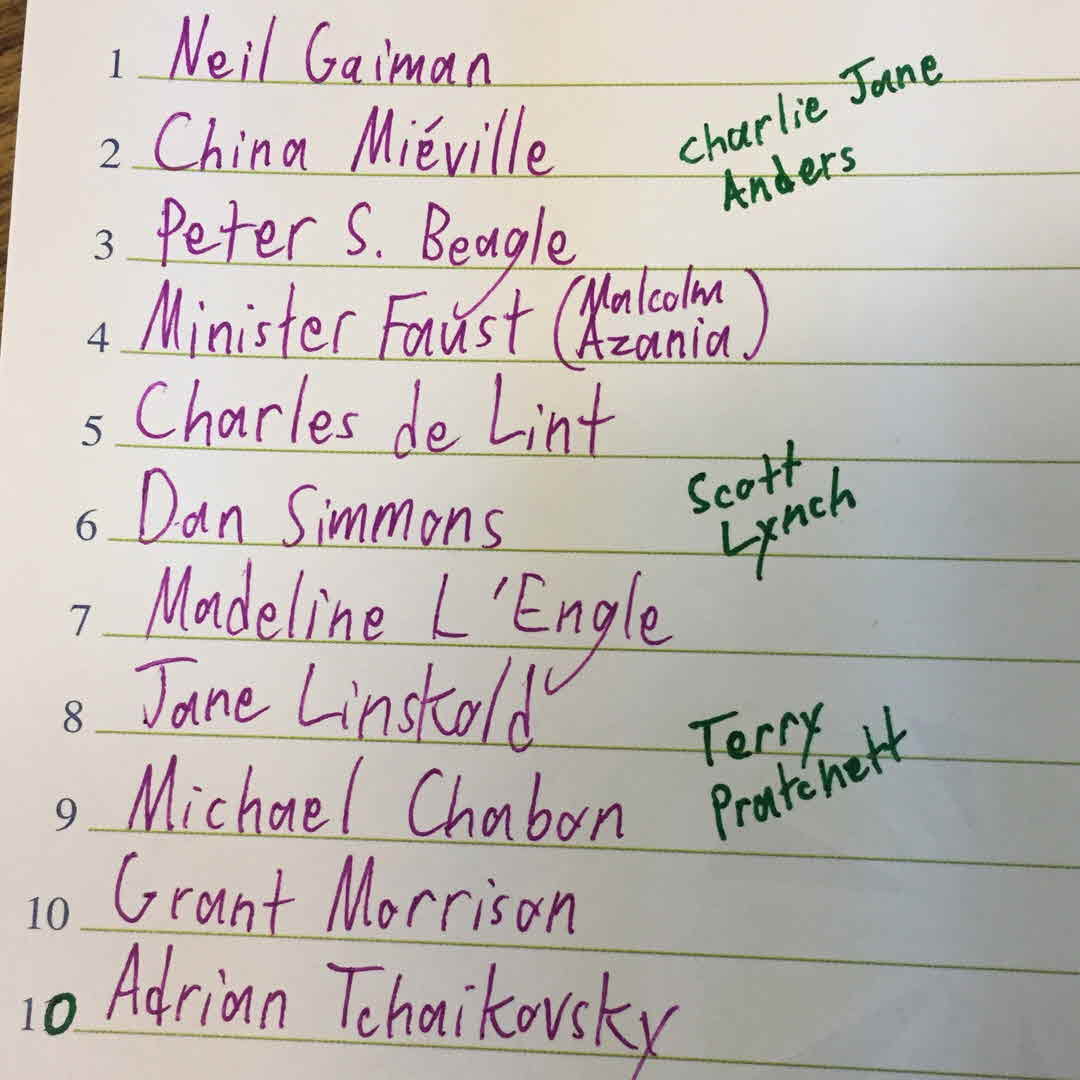 1 Neil Gaiman
2 China Miéville
Charlie Jane
Anders
3 Peter S. Beagle
4 Minister Faust (Malcolm
Azania)
5 Charles de Lint
6 Dan Simmons
Scott
Lynch
7 Madeline L'Engle
8 Jane Linskold
Terry
Pratchett
9 Michael Chabon
10 Grant Morrison
10 Adrian Tchaikovsky